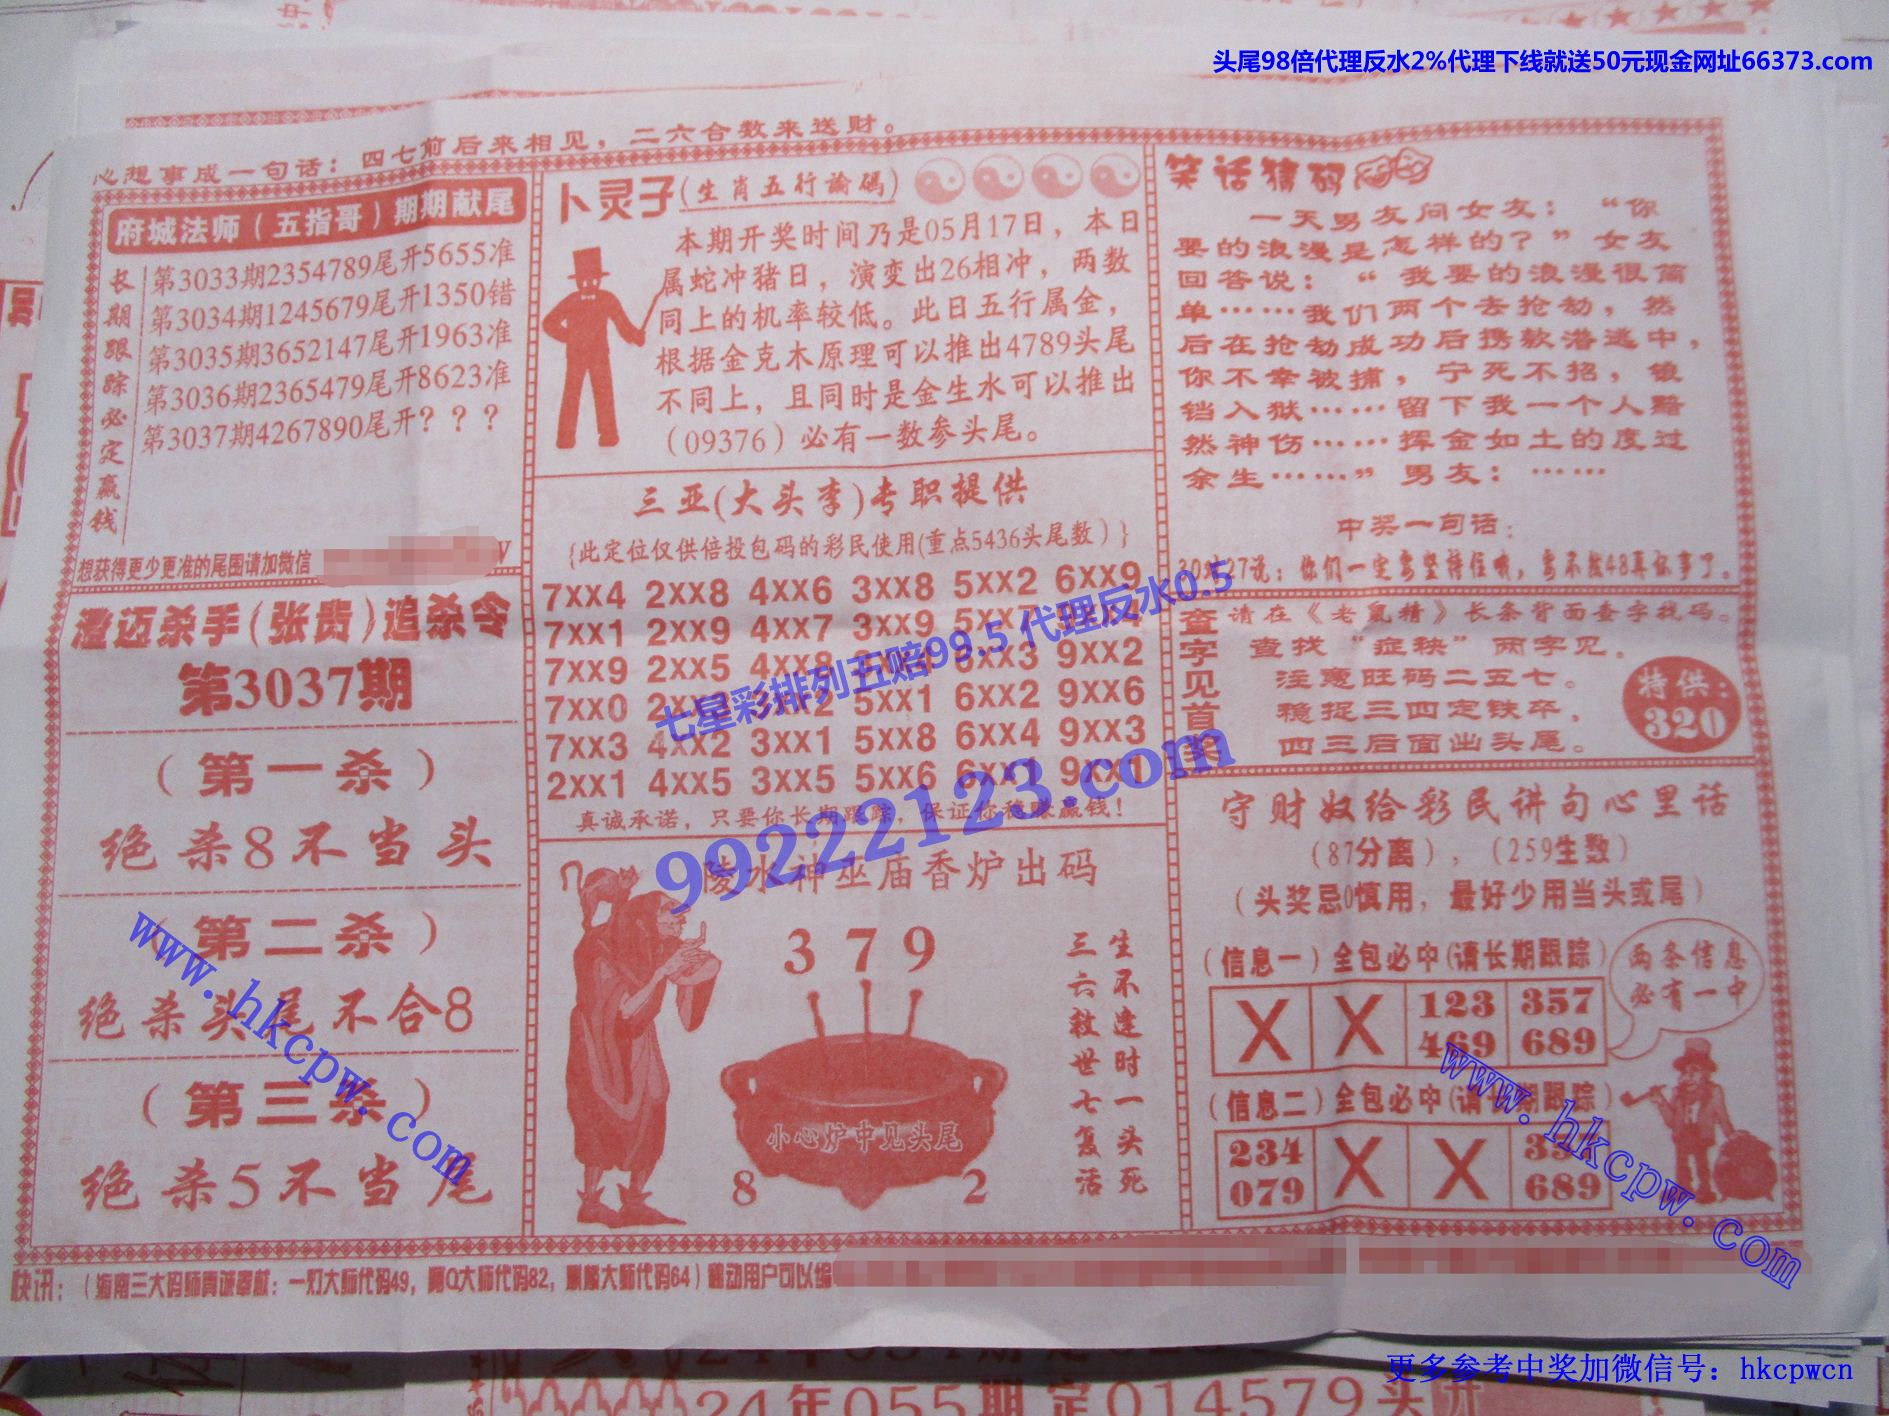 头尾98倍代理反水2%代理下线就送50元现金网址66373.com
心想事成一句话：四七前后来相见，二六合数来送财。
府城法师（五指哥）期期献尾
长期跟踪必定赢钱
第3033期2354789尾开5655准
第3034期1245679尾开1350错
第3035期3652147尾开1963准
第3036期2365479尾开8623准
第3037期4267890尾开？？？
想获得更少更准的尾围请加微信
澄迈杀手(张贵)追杀令
第3037期
（第一杀）
绝杀8不当头
（第二杀）
绝杀头尾不合8
（第三杀）
绝杀5不当尾
卜灵子(生肖五行論碼)
本期开奖时间乃是05月17日，本日
属蛇冲猪日，演变出26相冲，两数
同上的机率较低。此日五行属金，
根据金克木原理可以推出4789头尾
不同上，且同时是金生水可以推出
（09376）必有一数参头尾。
三亚(大头李)专职提供
{此定位仅供倍投包码的彩民使用(重点5436头尾数)}
7XX4 2XX8 4XX6 3XX8 5XX2 6XX9
7XX1 2XX9 4XX7 3XX9 5XX7
7XX9 2XX5 4XX8 6XX3 9XX2
7XX0 5XX1 6XX2 9XX6
7XX3 4XX2 3XX1 5XX8 6XX4 9XX3
2XX1 4XX5 3XX5 5XX6 6XX1 9XX1
真诚承诺，只要你长期跟踪，保证你稳赚赢钱！
七星彩排列五赔99.5 代理反水0.5
99222123.com
陵水神巫庙香炉出码
3 7 9
小心炉中见头尾
8 2
生不逢时一头死
三六救世七复活
笑话猜码
一天男友问女友：“你
要的浪漫是怎样的？”女友
回答说：“我要的浪漫很简
单……我们两个去抢劫，然
后在抢劫成功后携款潜逃中，
你不幸被捕，宁死不招，锒
铛入狱……留下我一个人黯
然神伤……挥金如土的度过
余生……”男友：……
中奖一句话：
30对27说：你们一定要坚持住哦，要不然48真你事了。
查字见首奖
请在《老鼠精》长条背面查字找码。
查找“症秧”两字见。
注意旺码二五七。
稳捉三四定铁卒，
四三后面出头尾。
特供：
320
守财奴给彩民讲句心里话
（87分离），（259生数）
（头奖忌0慎用，最好少用当头或尾）
（信息一）全包必中(请长期跟踪)
X X 123 357
469 689
两条信息
必有一中
（信息二）全包必中(请长期跟踪)
234 X X 357
079 689
www.hkcpw.com
www.hkcpw.com
快讯：（海南三大码师真诚奉献：一灯大师代码49，阿Q大师代码82，
大师代码64）移动用户可以编
24年055期定014579头开
更多参考中奖加微信号：hkcpwcn